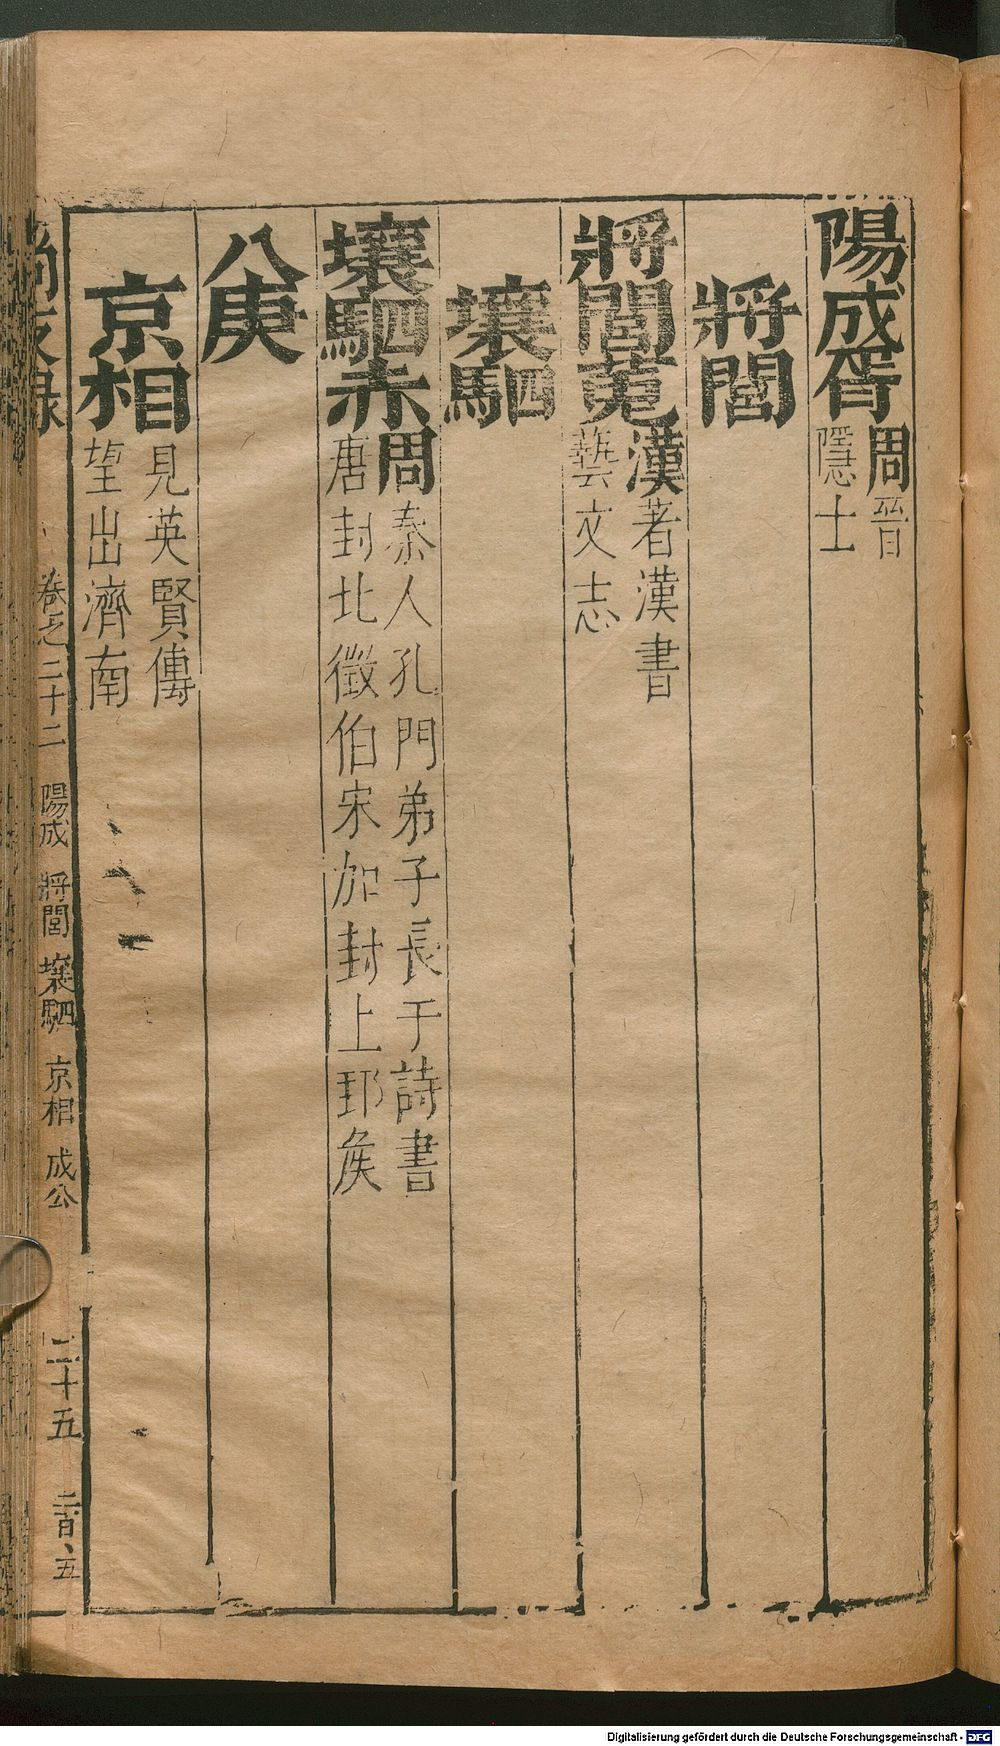 陽成胥周晉
隱士
將閭
將閭菟漢著漢書
藝文志
壤駟
壤駟赤周秦人孔門弟子長于詩書
唐封北徵伯宋加封上邽侯
八庚
京相見英賢傳
望出濟南
尚友錄 卷之二十二 陽成 將閭 壤駟 京相 成公 二十五
Digitalisierung gefördert durch die Deutsche Forschungsgemeinschaft - DFG